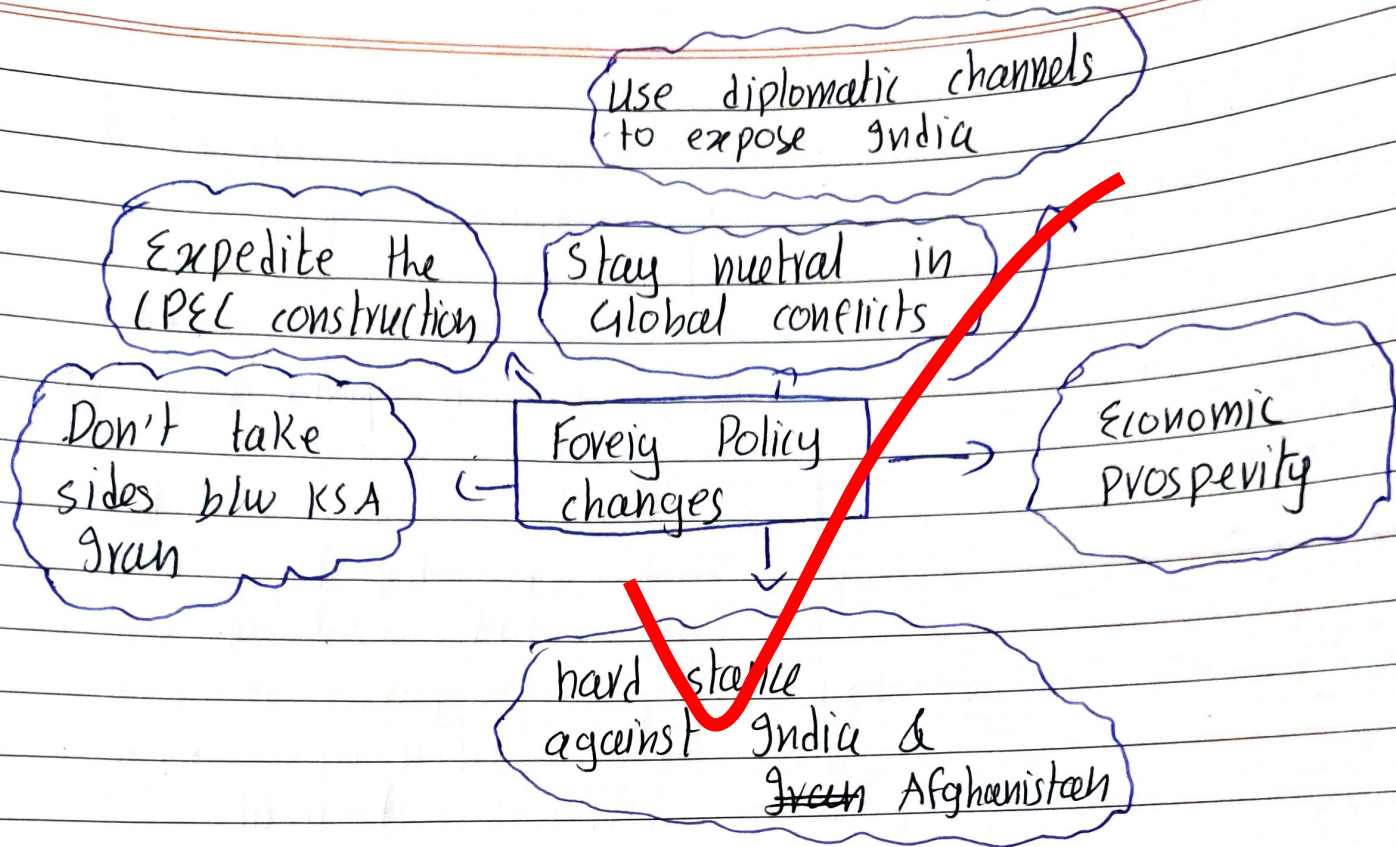 Use diplomatic channels
to expose India
Expedite the
CPEC construction
Stay nuetral in
Global conflicts
Don't take
sides b/w KSA
Iran
Foreig Policy
changes
Economic
prosperity
hard stance
against India &
Iran Afghanistan